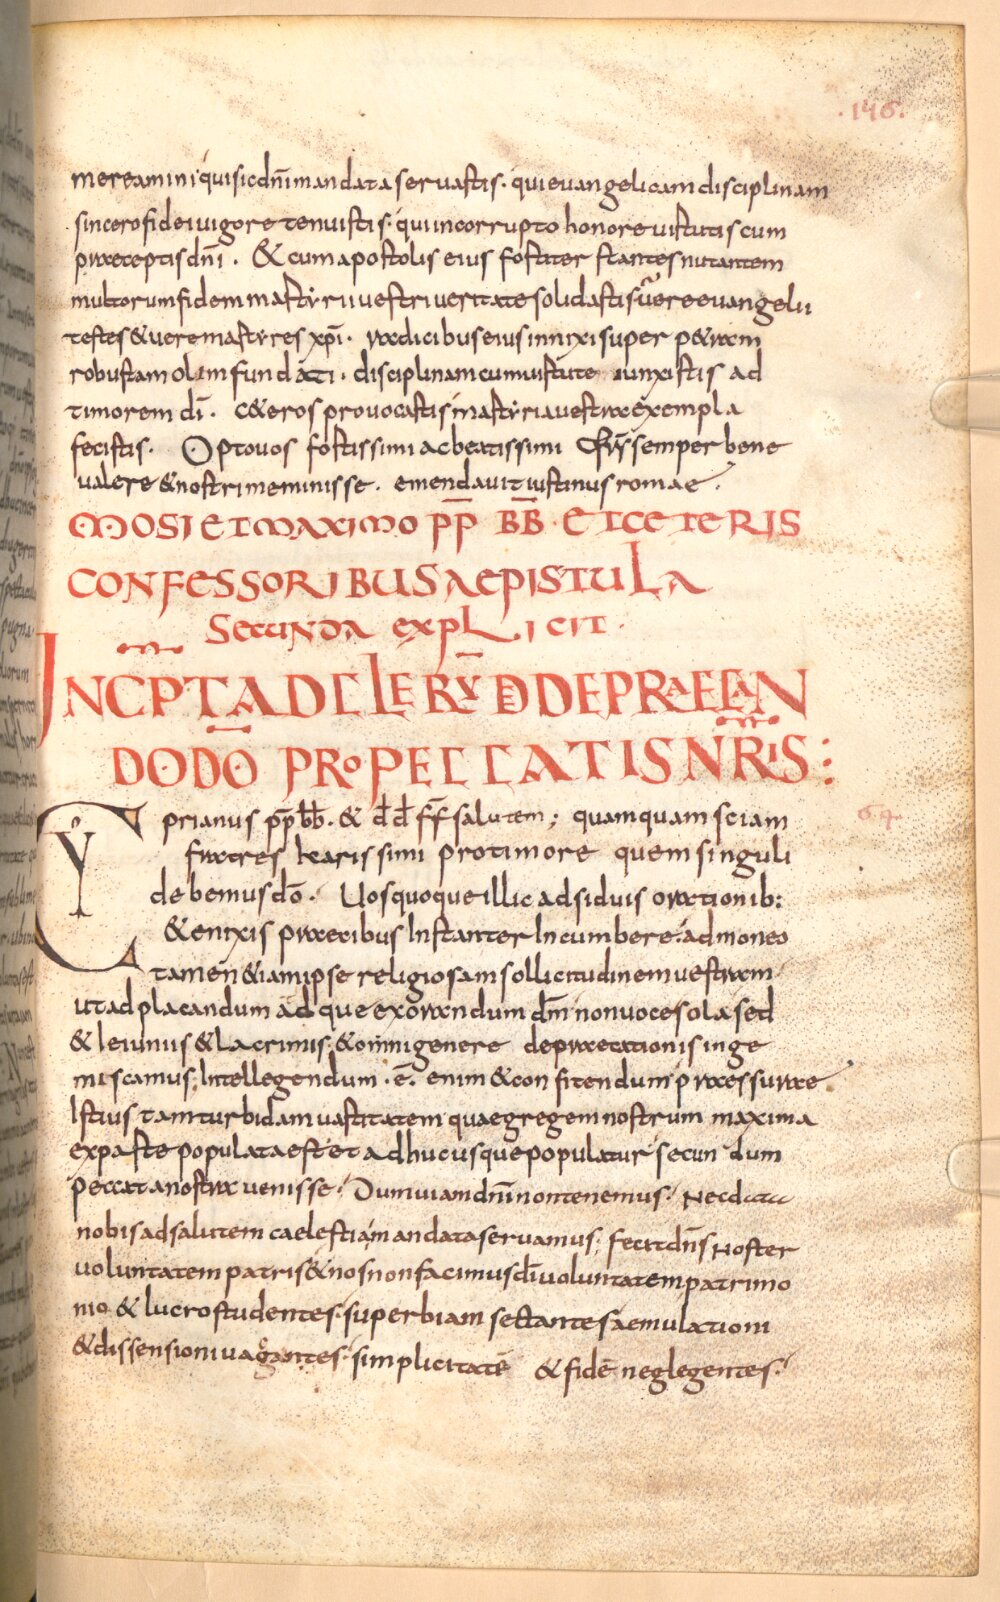 .146.
mereamini quisicdn̄imandataseruastis· quieuangelicamdisciplinam
sincerofideiuigoretenuistis· quiincorruptohonoreuirtutiscum
praeceptisdn̄i· &cumapostoliseius fortiter stantesnutantem
multorumfidemmartyriiuestriueritatesolidastisuereeuangelii
testes&ueremartyresxp̄i· radicibuseiusinnixisuper p&ram
robustamolimfundati· disciplinamcumuirtute iunxistis ad
timorem dī· c&erosprouocastismartyriauestraexempla
fecistis· Optouos fortissimiacbeatissimi f̄r̄ssemperbene
ualere&nostrimeminisse· emendauitiustinusromae·
MOSIETMAXIMO P̄P̄ B̄B̄· ETCETERIS
CONFESSORIBUSAEPISTULA
SECUNDA EXPLICIT·
INCP̄TADCLERV̄ DDEPRAECAN
DODŌ PROPECCATISN̄RIS:
Cyprianus p̄pb̄b̄· & d̄d̄ f̄f̄salutem; quamquamsciam
fratres karissimi protimore quemsinguli
debemusdō· Uosquoqueillicadsiduisorationib:
&enixis praecibusInstanterIncumbere·admoneo
tamen&iamipsereligiosamsollicitudinemuestram
utadplacandum adqueexorandumdm̄nonuocesolased
&Ieiuniis&Lacrimis·&omnigenere depraecationisinge
miscamus;Intellegendum·ē·enim&confitendumpraessurae
Istiustamturbidamuastitatemquaegregemnostrummaxima
expartepopulataestetadhucusquepopulatursecundum
peccatanostrauenisse· Dumuiamdn̄inontenemus· Necdata
nobisadsalutemcaelestiamandataseruamus; fecitdn̄sNoster
uoluntatempatris&nosnonfacimusdīuoluntatempatrimo
nio&lucrostudentes·superbiamsectantesaemulationi
&dissensioniuagantes·simplicitatē &fidēneglegentes·
64